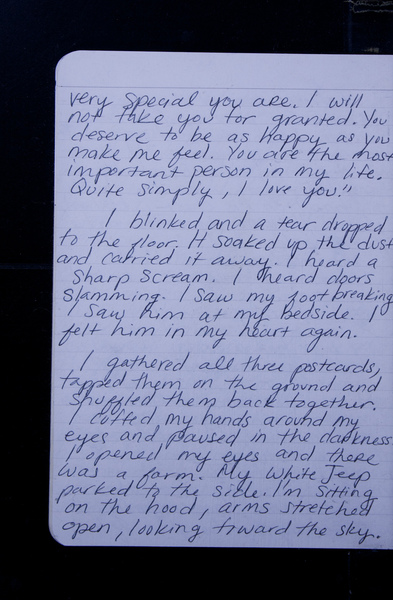 very special you are. I will
not take you for granted. You
deserve to be as happy as you
make me feel. You are the most
important person in my life.
Quite simply, I love you."
I blinked and a tear dropped
to the floor. It soaked up the dust
and carried it away. I heard a
sharp scream. I heard doors
slamming. I saw my foot breaking
I saw him at my bedside. I
felt him in my heart again.
I gathered all three postcards,
tapped them on the ground and
shuffled them back together.
I cuffed my hands around my
eyes and paused in the darkness
I opened my eyes and there
was a farm. My white Jeep
parked to the side. I'm sitting
on the hood, arms stretched
open, looking toward the sky.